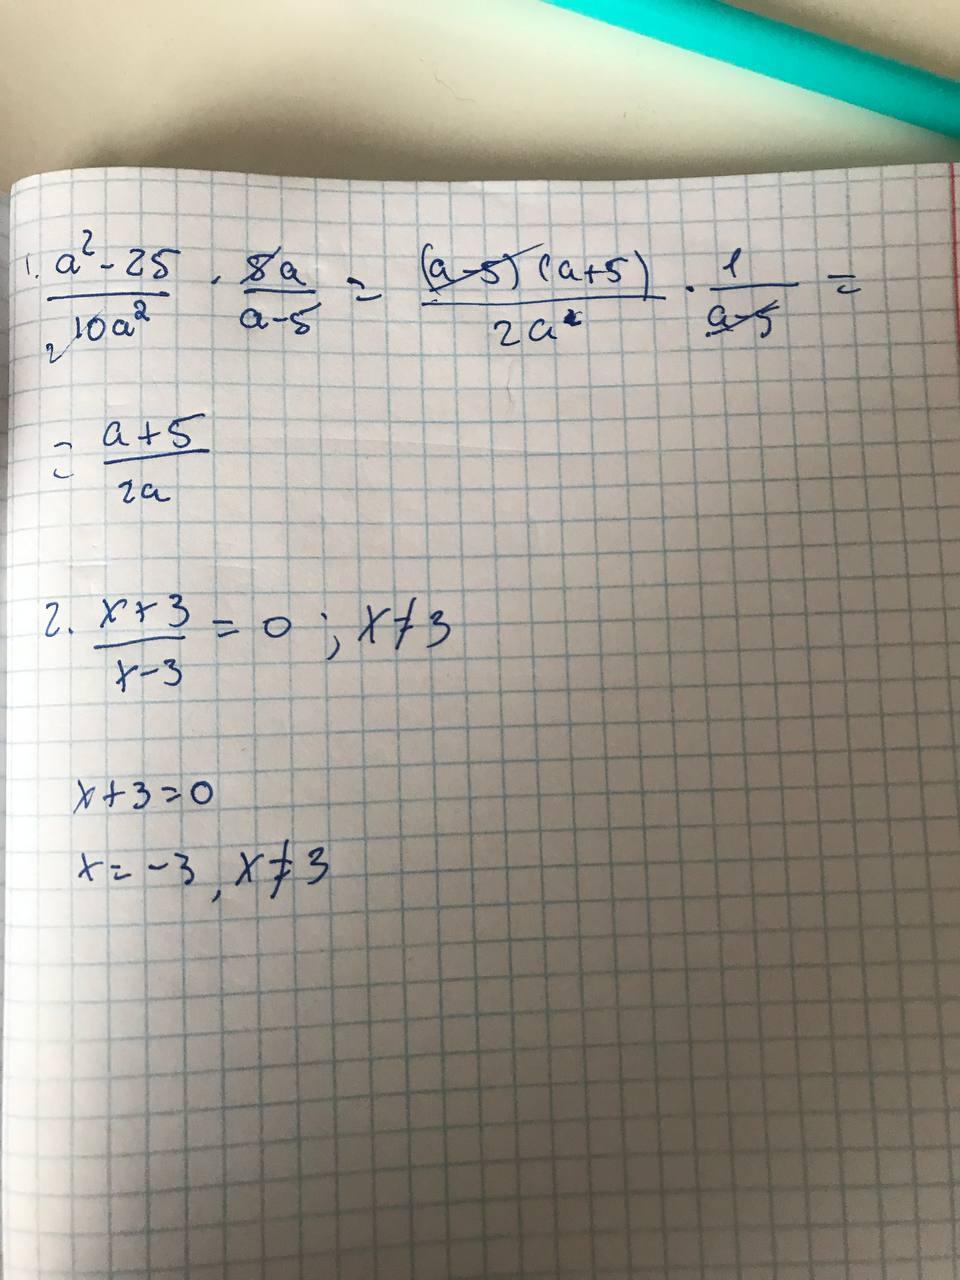 1. a² - 25 / 10a² 2 · 5a / a - 5 = (a - 5)(a + 5) / 2a · 1 / a - 5 =
= a + 5 / 2a
2. x + 3 / x - 3 = 0 ; x ≠ 3
x + 3 = 0
x = -3, x ≠ 3